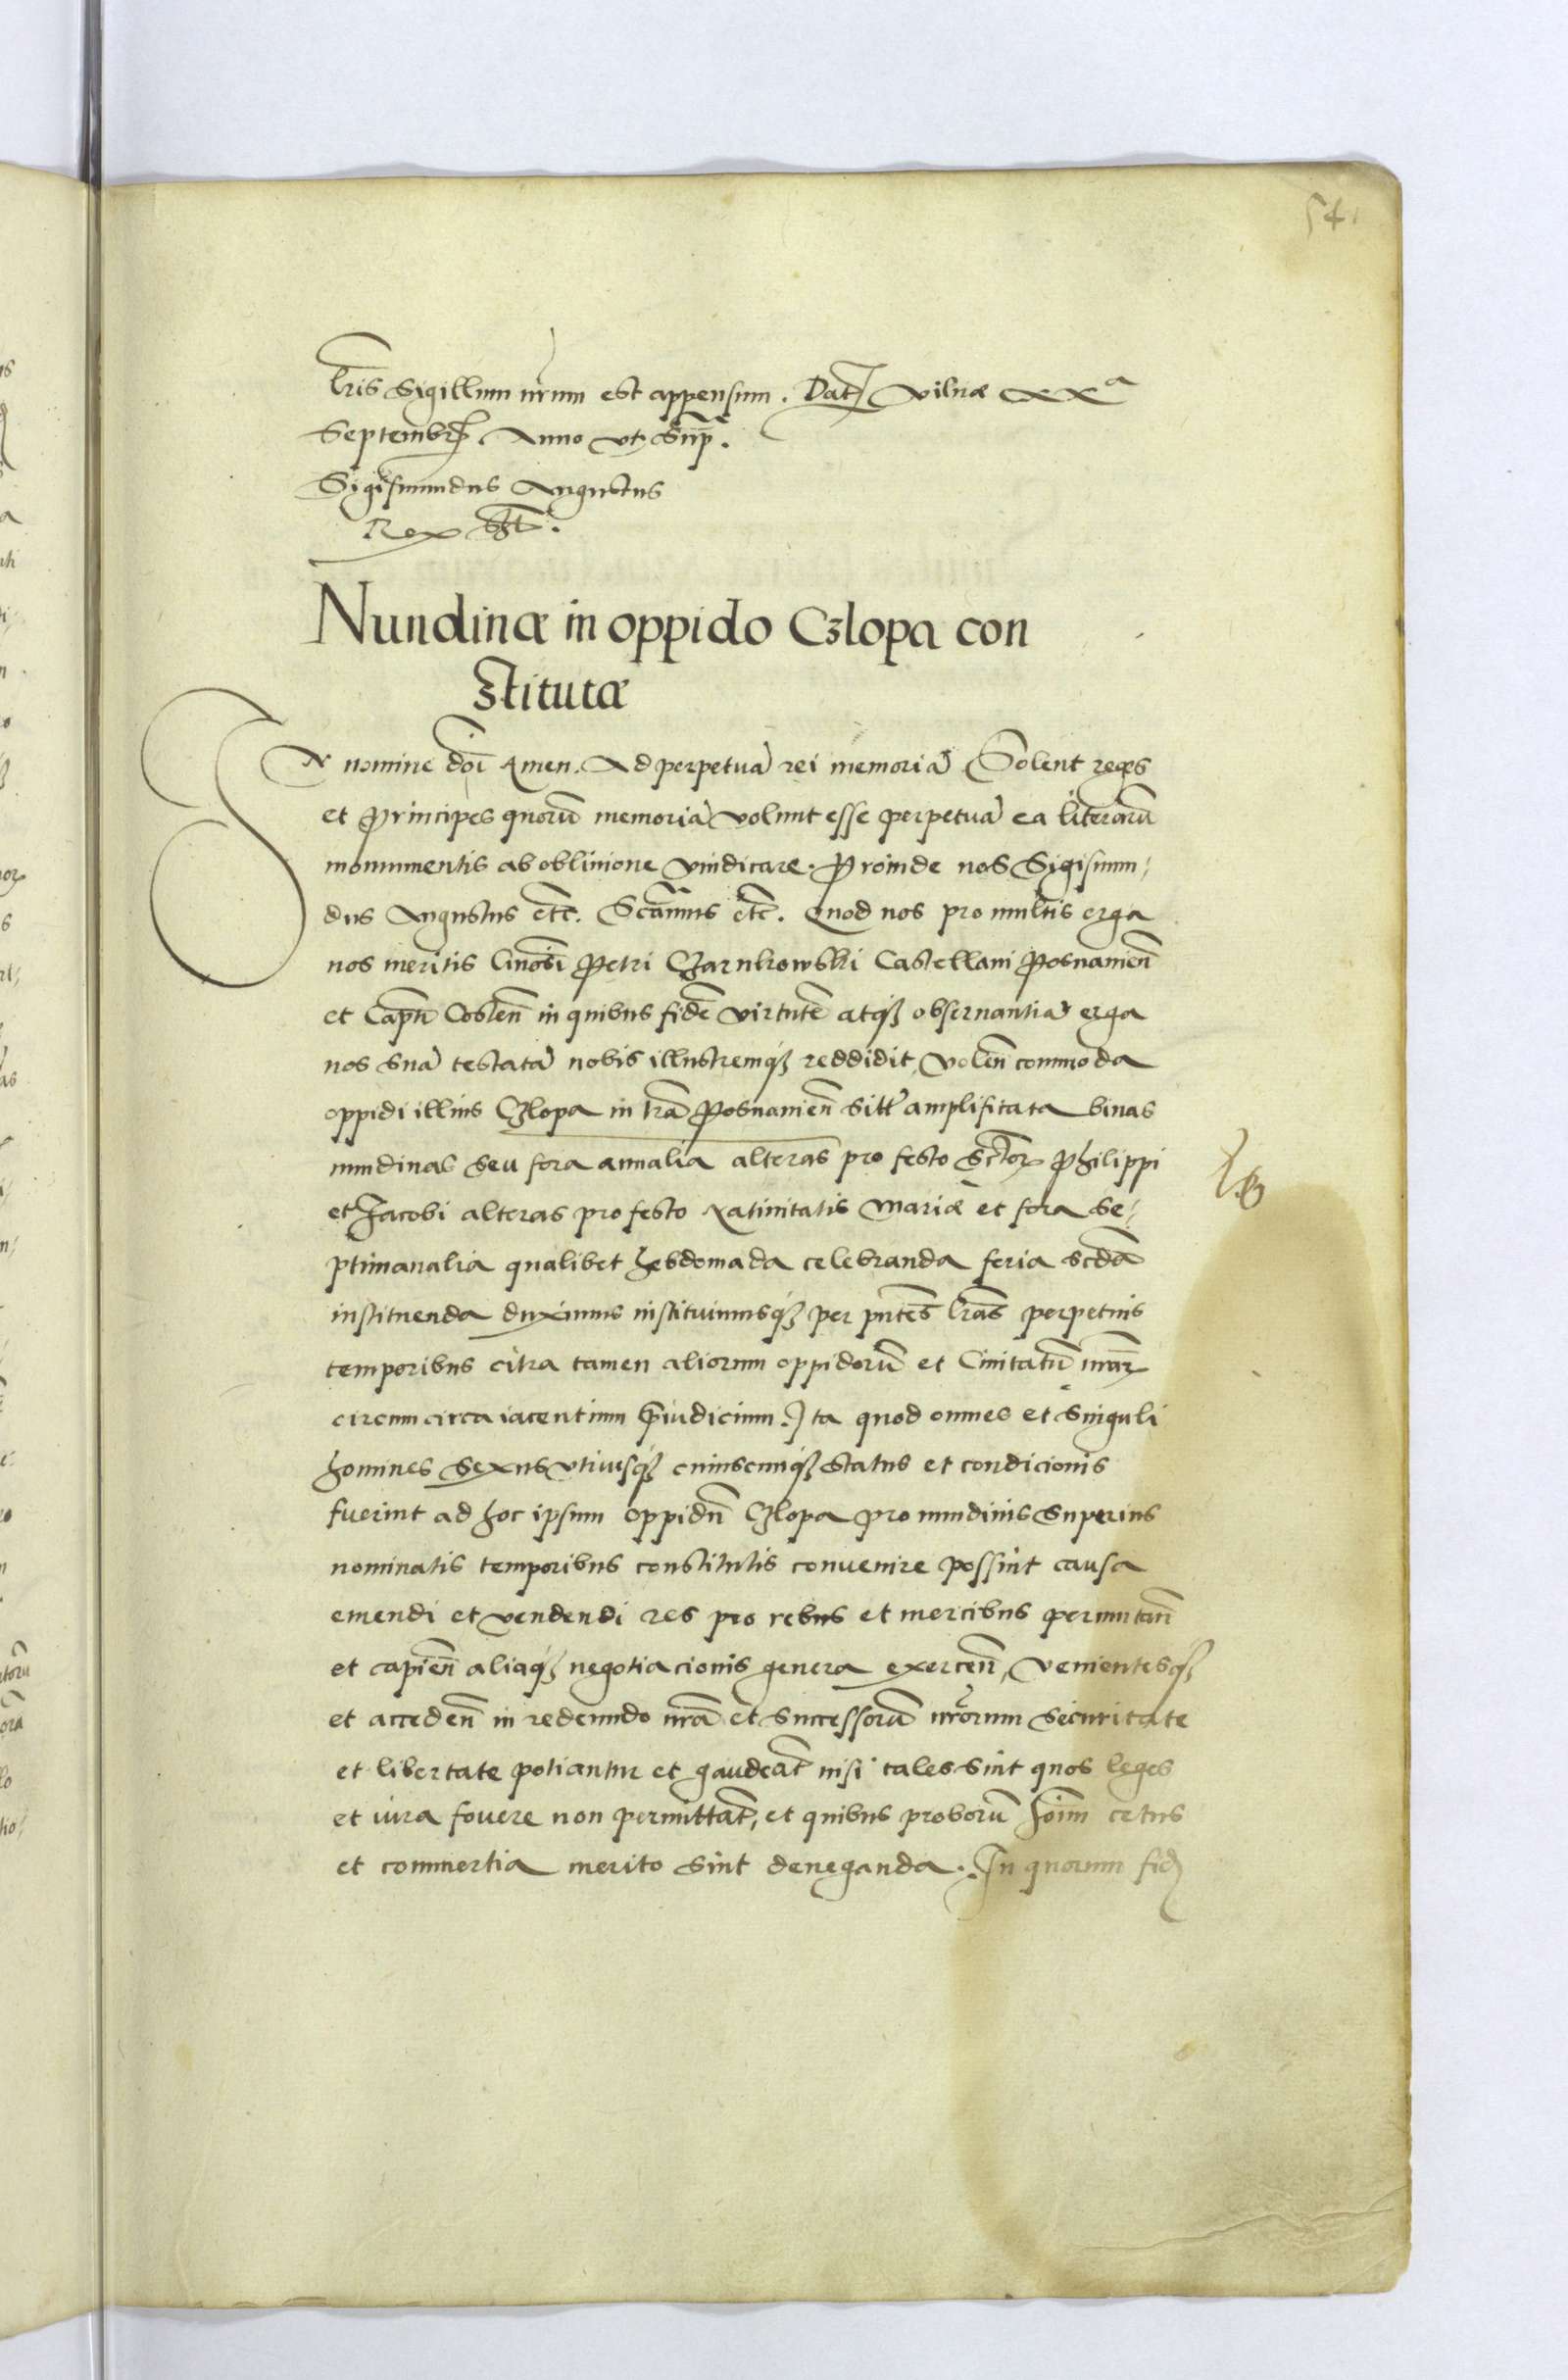 54
lr̃is Sigillum nr̃um est appensum. Dat̃ Vilnæ XXa
Septembr̃ Anno ut sup̃.
Sigismundus Augustus
Rex ss̃t.
Nundinæ in oppido Czlopa con
stitutæ
IN nomine dñi Amen. Ad perpetuã rei memoriã Solent reges
et Principes quorũ memoriã volunt esse perpetuã ea literarũ
monumentis ab oblivione vindicare. Proinde nos Sigismun-
dus Augustus etc̃. Scãmus etc̃. Quod nos pro multis erga
nos meritis Gnosi Petri Czarnkowski Castellani Posnanieñ
et Capñ Costeñ in quibus fidẽ virtutẽ atq3 observantiã erga
nos suã testatã nobis illustremq3 reddidit, voleñ commoda
oppidi illius Czlopa in trã Posnanieñ sitĩ amplificata binas
nundinas seu fora annalia alteras pro festo Sctor̃ Philippi
et Jacobi alteras pro festo Nativitatis Mariæ et fora se-
ptimanalia qualibet hebdomada celebranda feria scdã
instituenda duximus instituimusq3 per pñtes lr̃as perpetuis
temporibus citra tamen aliorum oppidorũ et Civitatũ nr̃ar
circumcirca iacentium p̃iudicium. Ita quod omnes et singuli
homines sexus utiusq3 cuiuscunq3 status et condicionis
fuerint ad hoc ipsum oppidũ Czlopa pro nundinis superius
nominatis temporibus constitutis convenire possint causa
emendi et vendendi res pro rebus et mercibus permutañ
et capieñ aliaq3 negotiacionis genera exerceñ, venientesq3
et accedeñ in redeundo nr̃a et successorũ nr̃orum securitate
et libertate potiantur et gaudeãt nisi tales sint quos leges
et iura fovere non permittãt, et quibus proborũ hoĩm cetus
et commertia merito sint deneganda. In quorum fid̃